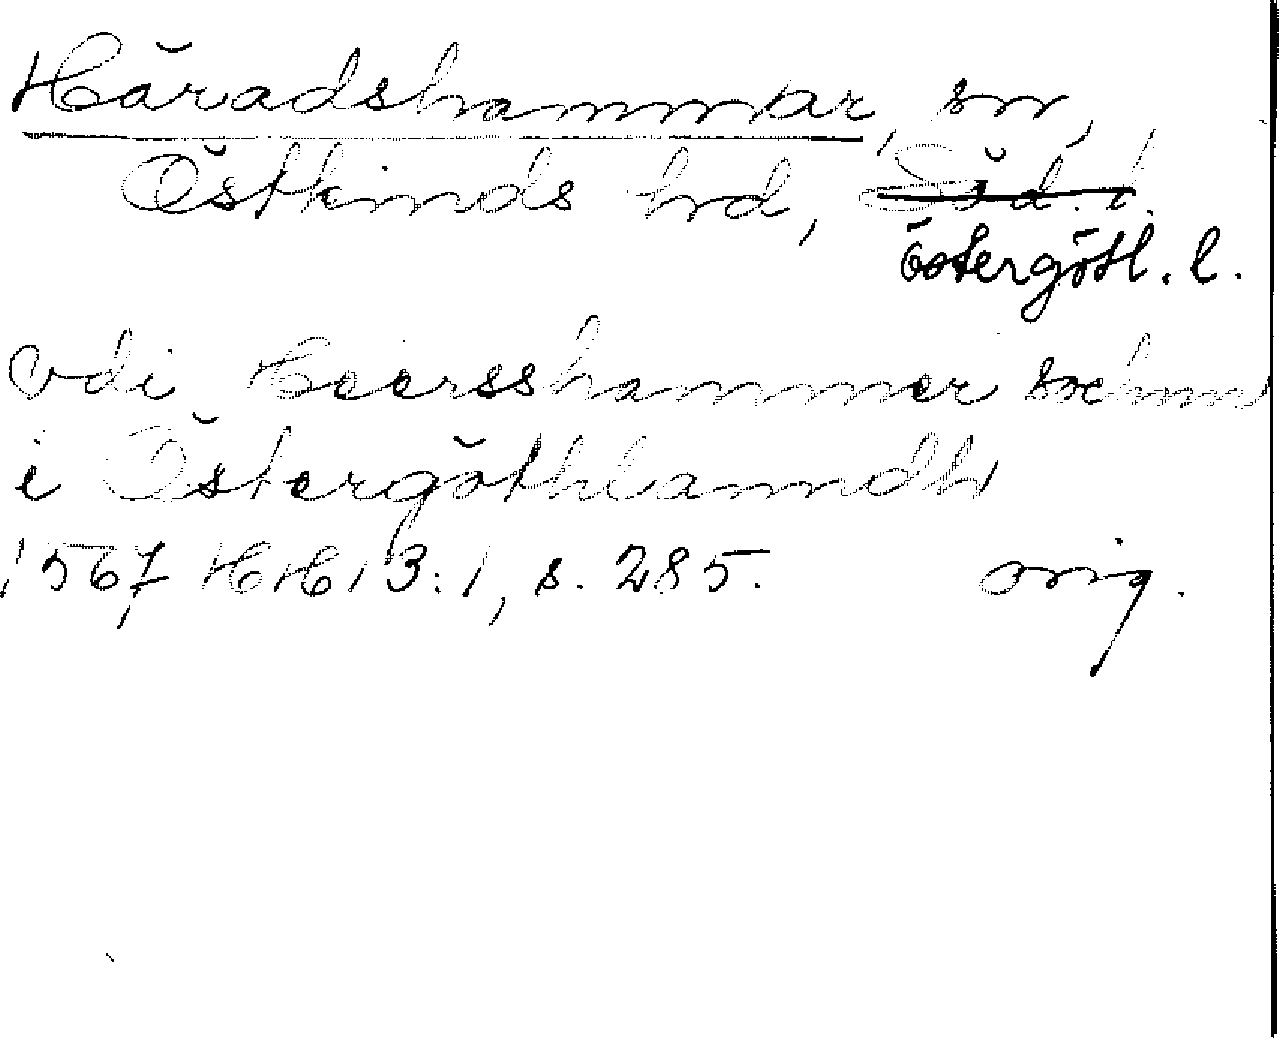 Häradshammar, sn,
Östkinds hrd, Söd. l.
Östergötl. l.
vdi Heersshammer sochnn
i Östergöthlanndh
1567 HH 13:1, s. 285. orig.